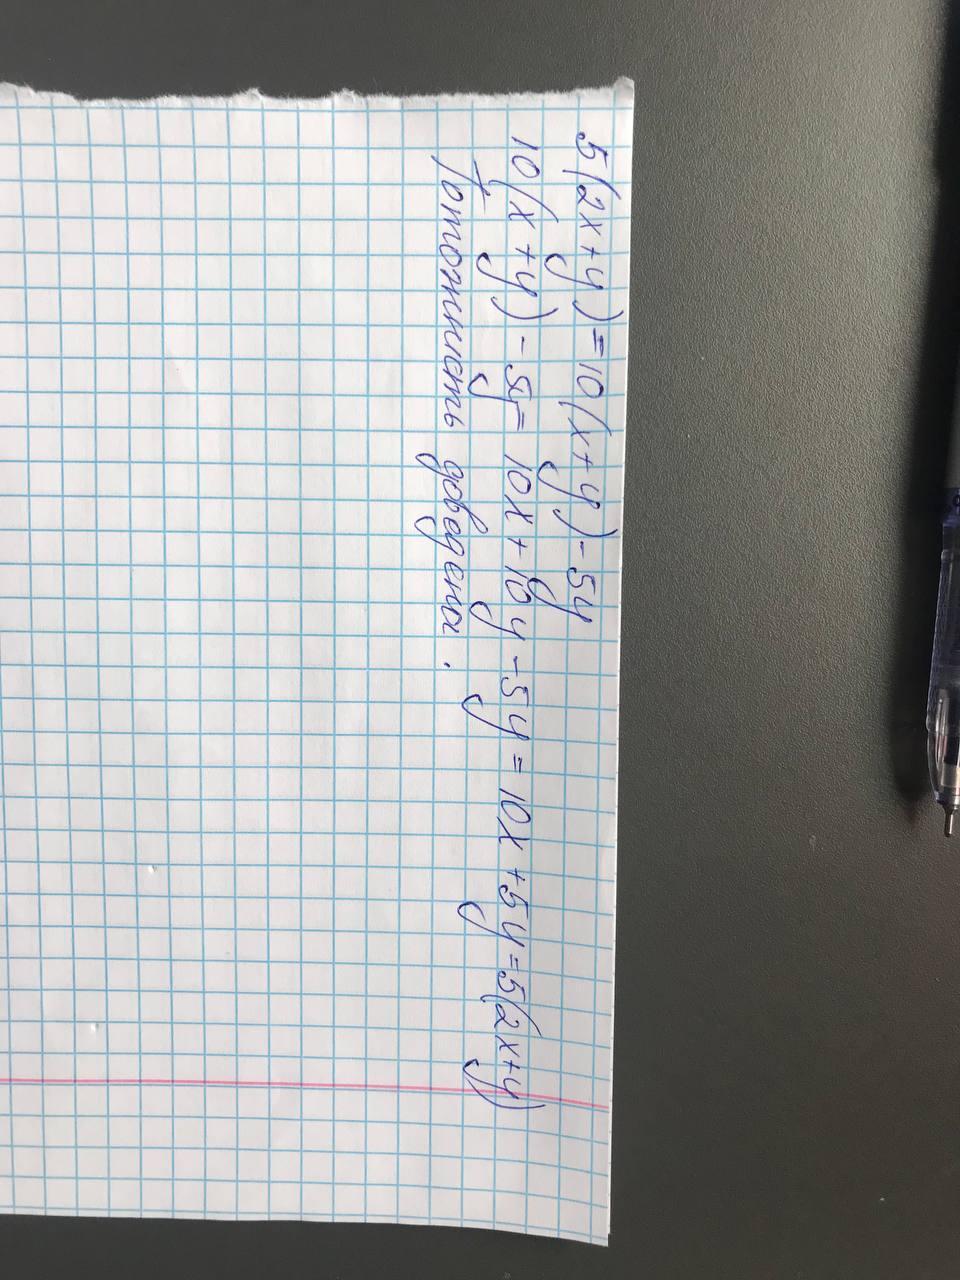 5(2x+y)=10(x+y)-5y
10(x+y)-5y=10x+10y-5y=10x+5y=5(2x+y)
Тотожність доведена.